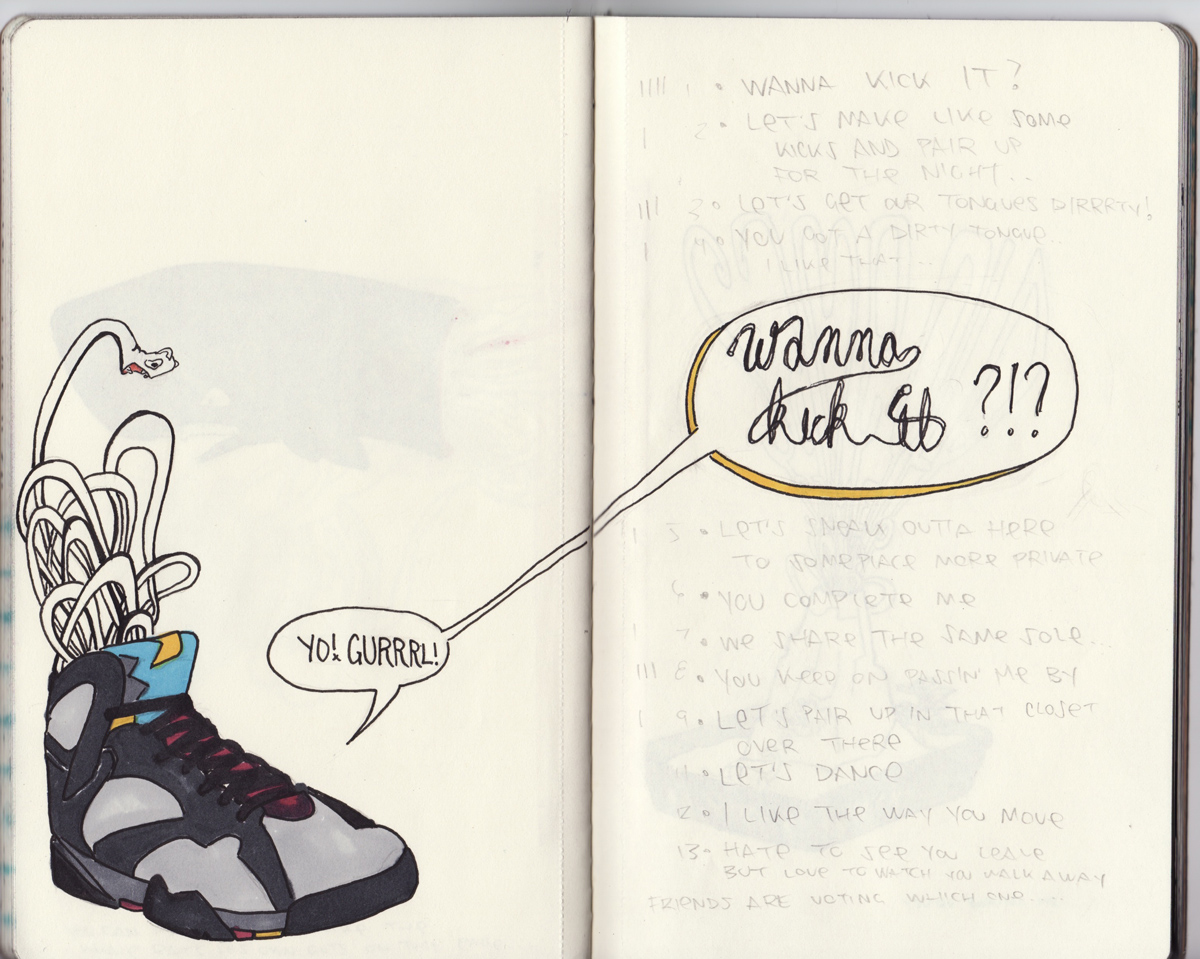 YO! GURRRL!
wanna
kick it ?!?
1111 1 • WANNA KICK IT?
1 2 • LET'S MAKE LIKE SOME
KICKS AND PAIR UP
FOR THE NIGHT..
111 3 • LET'S GET OUR TONGUES DIRRRTY!
1 4 • YOU GOT A DIRTY TONGUE..
I LIKE THAT...
1 5 • LET'S SNEAK OUTTA HERE
TO SOMEPLACE MORE PRIVATE
6 • YOU COMPLETE ME
1 7 • WE SHARE THE SAME SOLE...
111 8 • YOU KEEP ON PASSIN' ME BY
1 9 • LET'S PAIR UP IN THAT CLOSET
OVER THERE
11 • LET'S DANCE
12 • I LIKE THE WAY YOU MOVE
13 • HATE TO SEE YOU LEAVE
BUT LOVE TO WATCH YOU WALK AWAY
FRIENDS ARE VOTING WHICH ONE.....